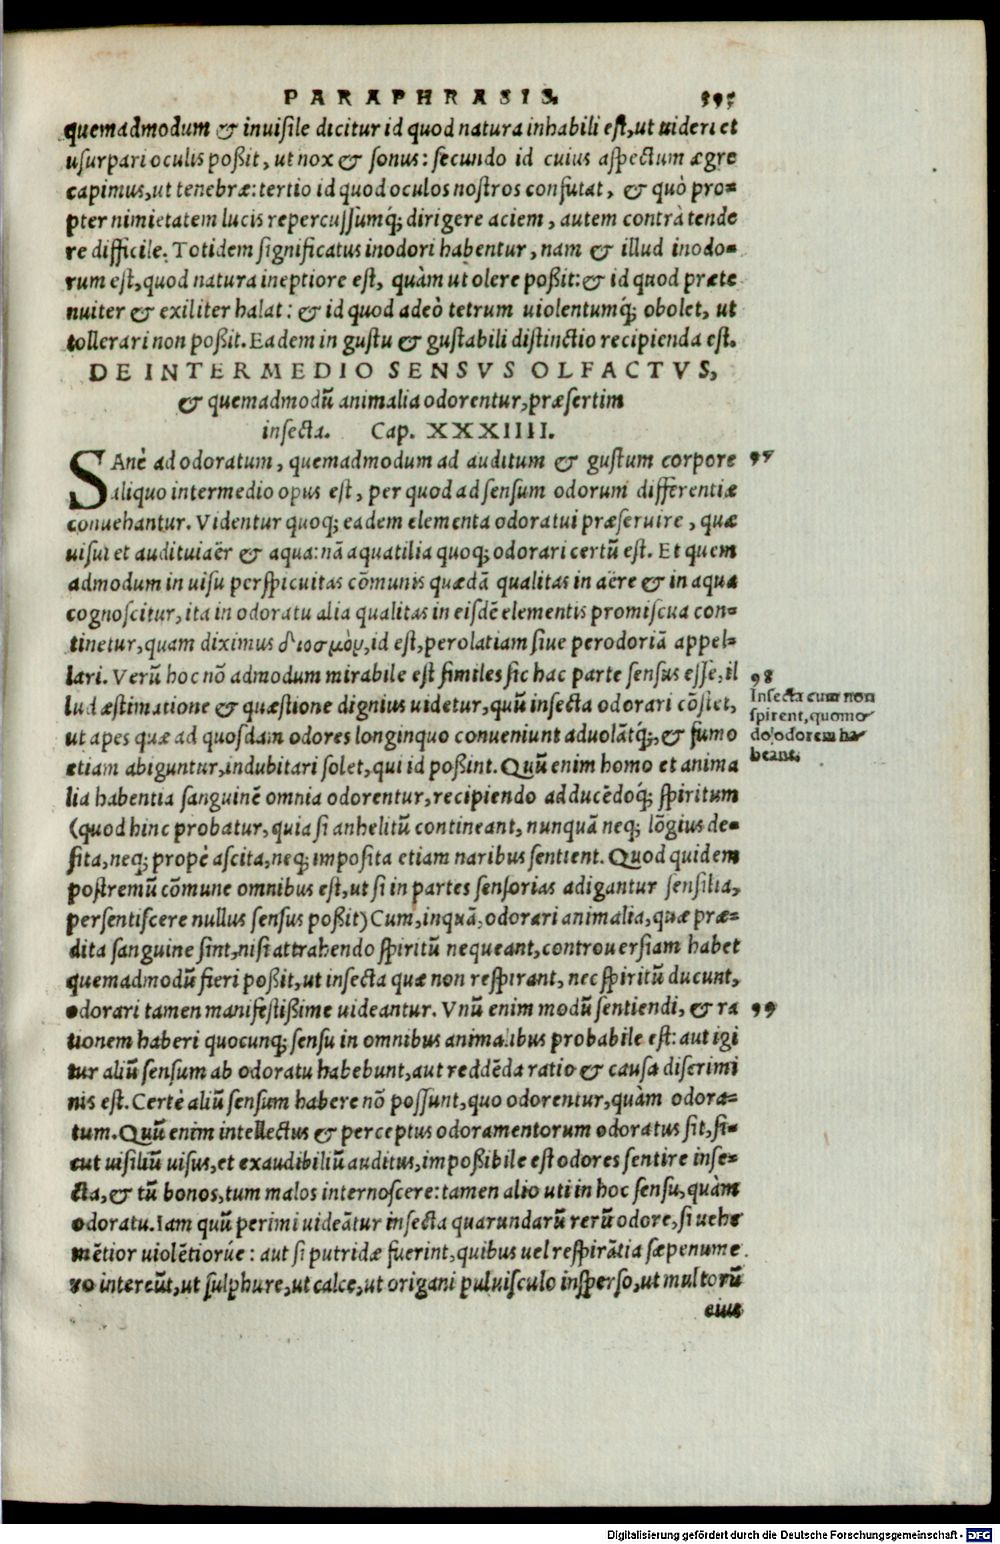 PARAPHRASIS.
quemadmodum & inuisile dicitur id quod natura inhabili est, ut uideri et
usurpari oculis poßit, ut nox & sonus: secundo id cuius aspectum ægre
capimus, ut tenebræ: tertio id quod oculos nostros confutat, & quò pro-
pter nimietatem lucis repercussumq́; dirigere aciem, autem contrà tende
re difficile. Totidem significatus inodori habentur, nam & illud inodo-
rum est, quod natura ineptiore est, quàm ut olere poßit: & id quod præte
nuiter & exiliter halat: & id quod adeò tetrum uiolentumq́; obolet, ut
tollerari non poßit. Eadem in gustu & gustabili distinctio recipienda est.
DE INTERMEDIO SENSVS OLFACTVS,
& quemadmodū animalia odorentur, præsertim
insecta. Cap. XXXIIII.
SAnè ad odoratum, quemadmodum ad auditum & gustum corpore
aliquo intermedio opus est, per quod ad sensum odorum differentiæ
conuehantur. Videntur quoq; eadem elementa odoratui præseruire, quæ
uisui et auditui aër & aqua: nā aquatilia quoq; odorari certū est. Et quem
admodum in uisu perspicuitas cōmunis quædā qualitas in aëre & in aqua
cognoscitur, ita in odoratu alia qualitas in eisdē elementis promiscua con-
tinetur, quam diximus δίοσμον, id est, perolatiam siue perodoriā appel-
lari. Verū hoc nō admodum mirabile est similes sic hac parte sensus esse, il
lud æstimatione & quæstione dignius uidetur, quū insecta odorari cōstet,
ut apes quæ ad quosdam odores longinquo conueniunt aduolātq́;, & fumo
etiam abiguntur, indubitari solet, qui id poßint. Quū enim homo et anima
lia habentia sanguinē omnia odorentur, recipiendo adducēdoq́; spiritum
(quod hinc probatur, quia si anhelitū contineant, nunquā neq; lōgius de-
sita, neq; propè ascita, neq; imposita etiam naribus sentient. Quod quidem
postremū cōmune omnibus est, ut si in partes sensorias adigantur sensilia,
persentiscere nullus sensus poßit) Cum, inquā, odorari animalia, quæ præ-
dita sanguine sint, nisi attrahendo spiritū nequeant, controuersiam habet
quemadmodū fieri poßit, ut insecta quæ non respirant, nec spiritū ducunt,
odorari tamen manifestißime uideantur. Vnū enim modū sentiendi, & ra
tionem haberi quocunq; sensu in omnibus animalibus probabile est: aut igi
tur aliū sensum ab odoratu habebunt, aut reddēda ratio & causa discrimi
nis est. Certè aliū sensum habere nō possunt, quo odorentur, quàm odora-
tum. Quū enim intellectus & perceptus odoramentorum odoratus sit, si-
cut uisiliū uisus, et exaudibiliū auditus, impoßibile est odores sentire inse-
cta, & tū bonos, tum malos internoscere: tamen alio uti in hoc sensu, quàm
odoratu. Iam quū perimi uideātur insecta quarundarū rerū odore, si uehe
mētior uiolētiorúe: aut si putridæ fuerint, quibus uel respirātia sæpenume
ro intereūt, ut sulphure, ut calce, ut origani puluisculo insperso, ut multorū
eius
97
98
Insecta cum non
spirent, quomo
do odorem ha
beant.
99
Digitalisierung gefördert durch die Deutsche Forschungsgemeinschaft - DFG